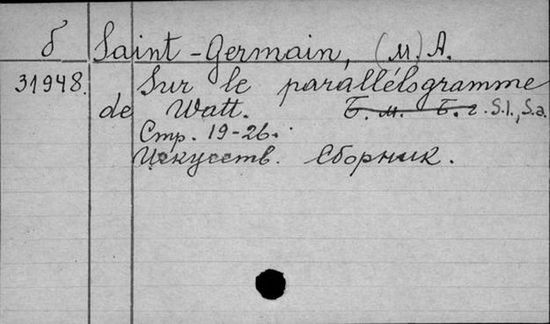 б Saint-Germain, (М) А.
31948. Sur le parallélogramme
de Watt. Б. м. Б. г. S.l., S.a.
Стр. 19-26.
Искусств. Сборник.